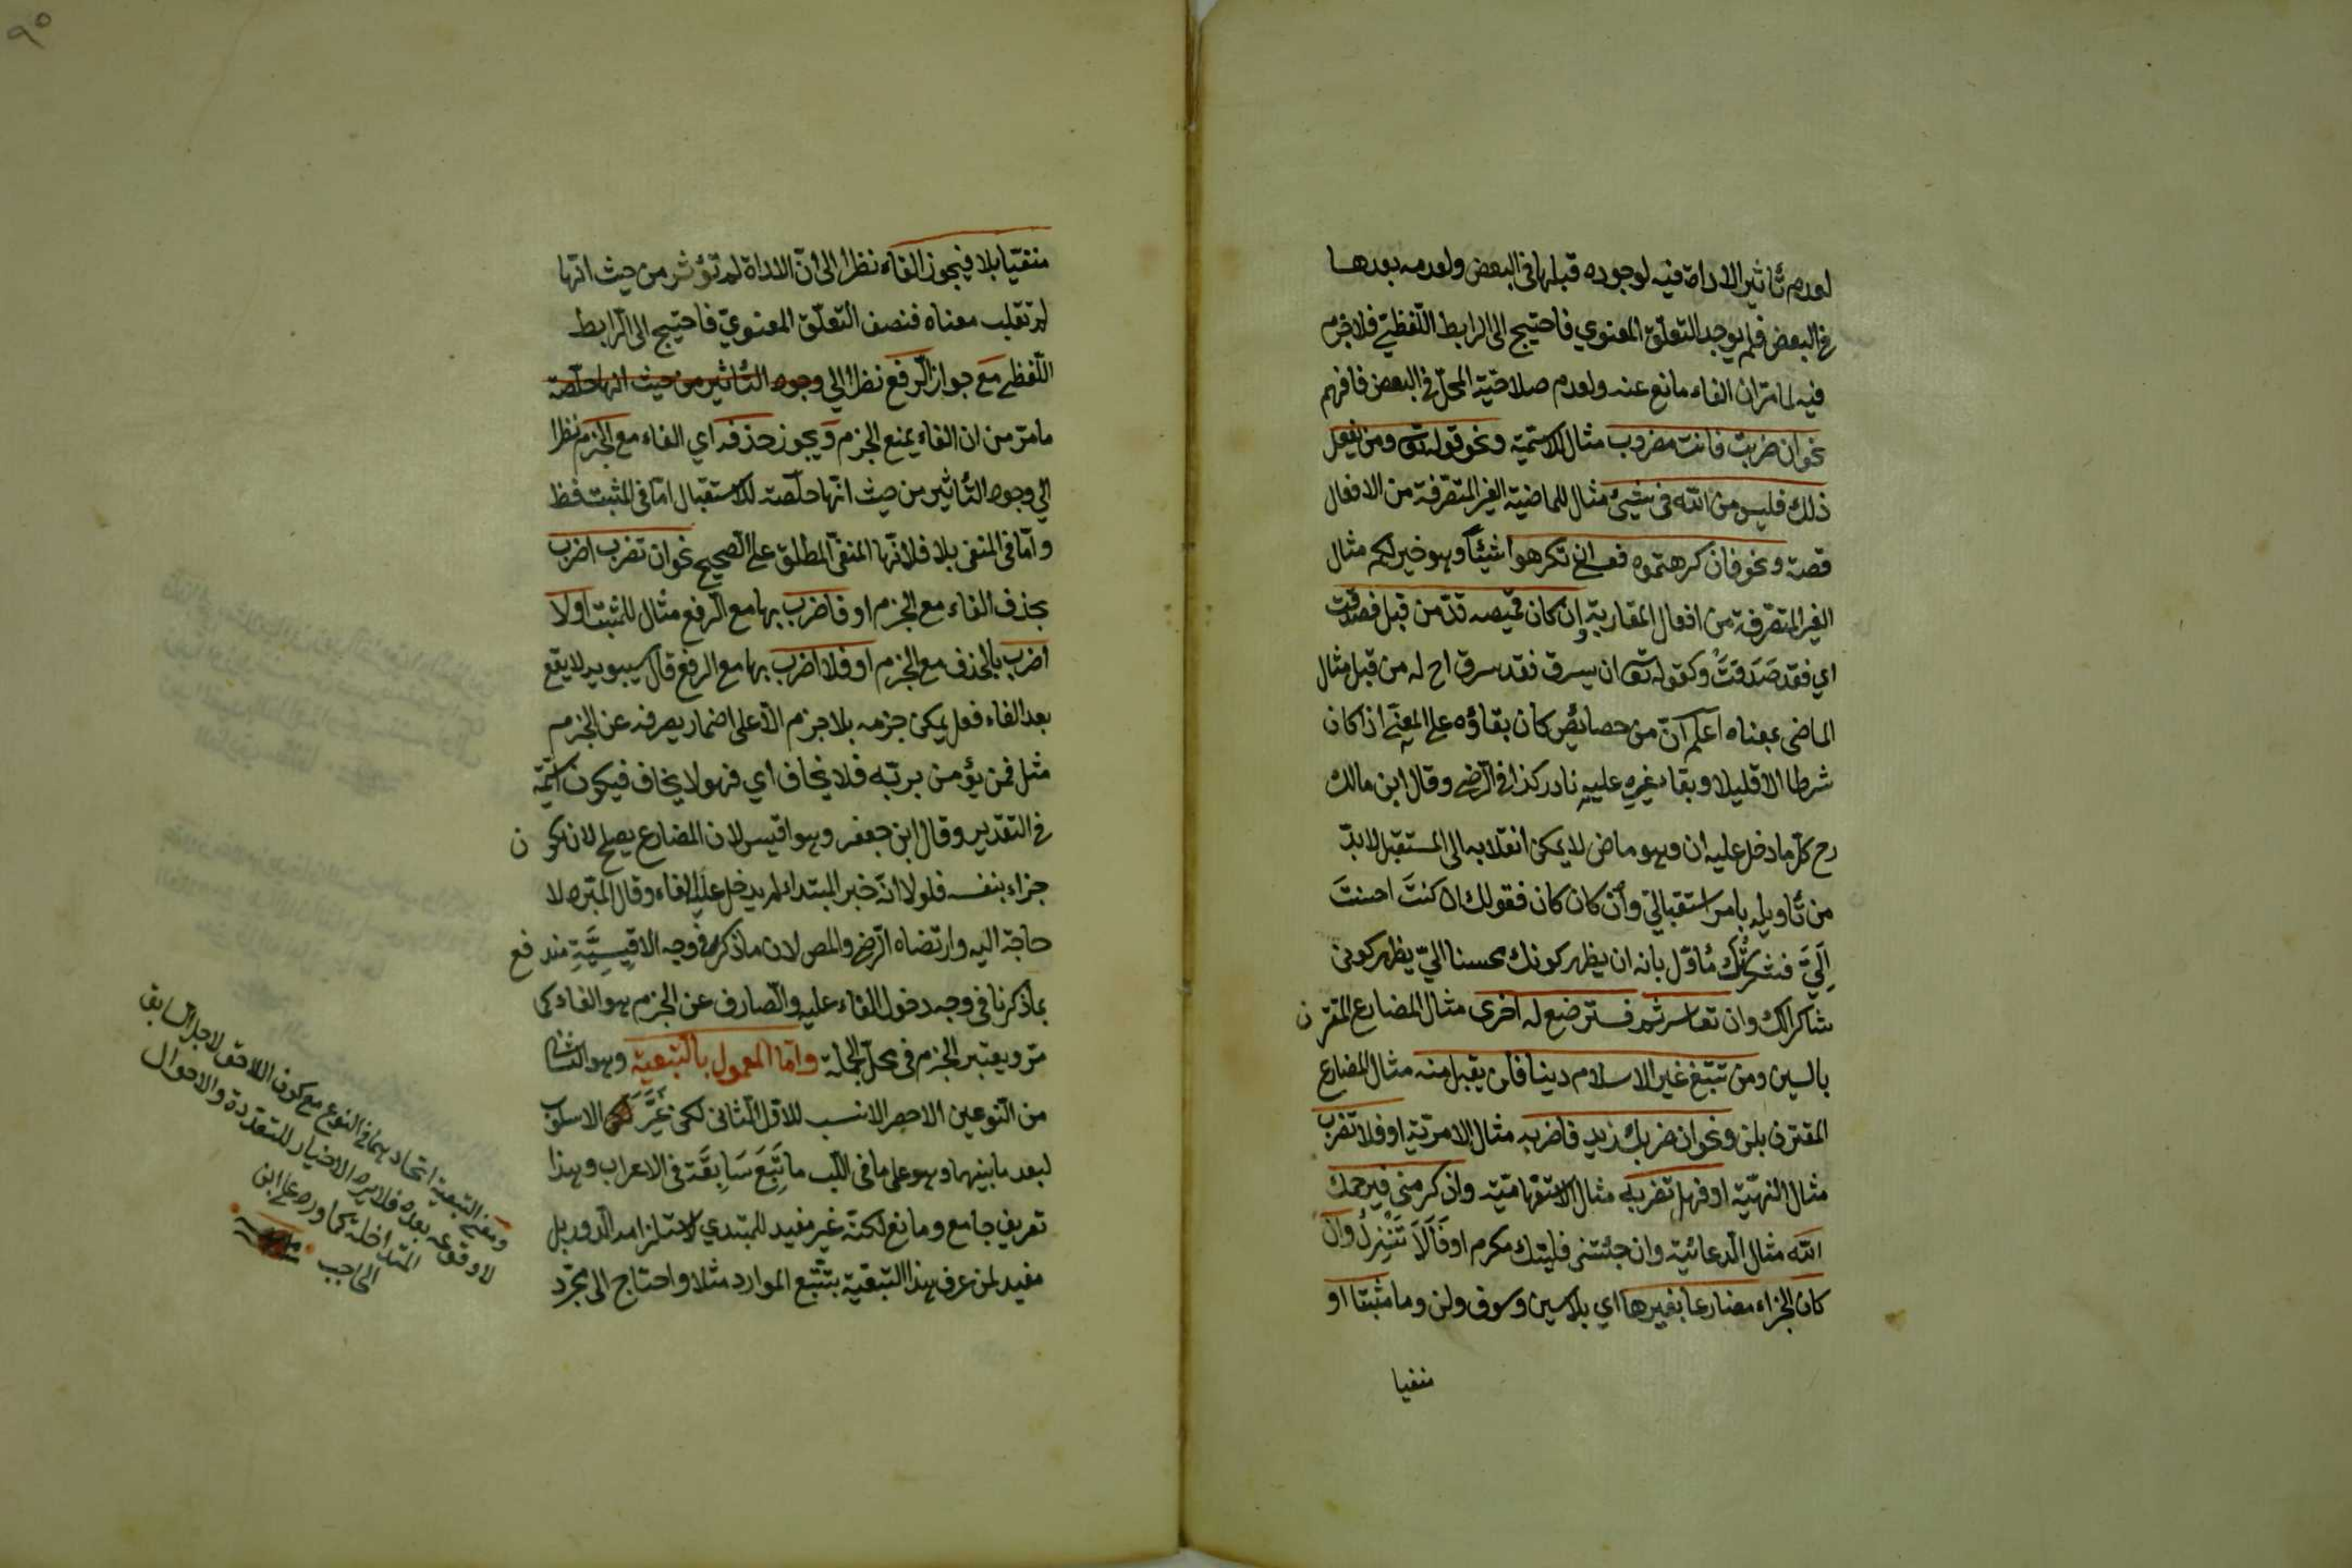 لعدم تأثير الاداة فيه لوجوده قبلها في البعض ولعدمه بعدها
في البعض فلم يوجد التعلق المعنوي فاحتيج الى الرابط اللفظي فلا جزم
فيه لما مر ان الفاء مانع عنه ولعدم صلاحية المحل في البعض فافهم
نحو ان ضربت فانت مضروب مثال للاسمية ونحو قوله تع ومن يفعل
ذلك فليس من الله في شيئ مثال للماضية الغير المتصرفة من الافعال
قصة ونحو فان كرهتموه فعسى ان تكرهوا شيئاً وهو خير لكم مثال
الغير المتصرفة من افعال المقاربة وان كان قميصه قدّ من قبل فصدقت
اي فقد صَدَقَتْ وكقوله تع ان يسرق فقد سرق اخ له من قبل مثال
الماضي بمعناه اعلم انّ من خصايص كان بقاؤه على المعنى اذا كان
شرطا الا قليلا وبقاء غيره عليه نادر كذا في الرضي وقال ابن مالك
رح كل ما دخل عليه ان وهو ماض لا يمكن انقلابه الى المستقبل لا بدّ
من تأويله بامر استقبالي وان كان كان فقولك ان كنتَ احسنتَ
اِلَيَّ فشكرتُك مُاوّل بانه ان يظهر كونك محسنا اليّ يظهر كوني
شاكرا لك وان تعاسرتم فسترضع له اخرى مثال المضارع المقترن
بالسين ومن يبتغ غير الاسلام دينا فلن يقبل منه مثال المضارع
المقترن بلن ونحو ان ضربك زيد فاضربه مثال الامرية او فلا تضرب
مثال النهيّة او فهل تضربه مثال الاستفهاميّة وان اكرمتني فيرحمك
الله مثال الدعائية وان جئتني فليتك مكرم او فَاَلَا تَنْزِلُ وان
كان الجزاء مضارعا بغيرها اي بلا سين وسوف ولن وما مثبتا او
منفيا
٩٥
منفيّا بلا فيجوز الفاء نظرا الى انّ الاداة لم تؤثر من حيث انها
لم تقلب معناه فنصف التعلّق المعنويّ فاحتيج الى الرابط
اللّفظي مع جواز الرفع نظرا الي وجود التأثير من حيث انها خلّصته
ما مر من ان الفاء يمنع الجزم ويجوز حذفه اي الفاء مع الجزم نظرا
الي وجود التأثير من حيث انها خلّصته للاستقبال امّا في المثبت فظ
وامّا في المنفي بلا فلانّها المنفي المطلق على الصحيح نحو ان تضرب اضرب
بحذف الفاء مع الجزم او فاضرب بها مع الرفع مثال للمثبت او لا
اضرب بالحذف مع الجزم او فلا اضرب بها مع الرفع قال سيبويه لا يقع
بعد الفاء فعل يمكن جزمه بلا جزم الّا على اضمار يصرفه عن الجزم
مثل فمن يؤمن بربّه فلا يخاف اي فهو لا يخاف فيكون اسميّة
في التقدير وقال ابن جعفر وهو اقيس لان المضارع يصلح لان يكون
جزاء بنفسه فلولا انّه خبر المبتدأ لم يدخل عليه الفاء وقال المبرد لا
حاجة اليه وارتضاه الرضي والمص لان ما ذكره في وجه الاقيسيَّةِ مندفع
بما ذكرنا في وجه دخول الفاء عليه والصارف عن الجزم هو الفاء كما
مرّ ويعتبر الجزم في محل الجملة وامّا المعمول بالتبعية وهو الثاني
من النوعين الاحصر الانسب للاوّل الثاني لكن غَيَّرَ الاسلوب
لبعد ما بينهما وهو على ما في اللب ما تَبِعَ سَابِقَه في الاعراب وهذا
تعريف جامع ومانع لكنّه غير مفيد للمبتدي لاستلزامه الدور بل
مفيد لمن عرف هذا التبعيّة بتتبّع الموارد مثلا واحتاج الى مجرّد
ومعنى التبعية اتحادهما في النوع مع كون اللاحق لاجل السابق
لا وقوعه بعده فلا يرد الاخبار المتعددة والاحوال
المتداخلة كما ورد على ابن
الحاجب